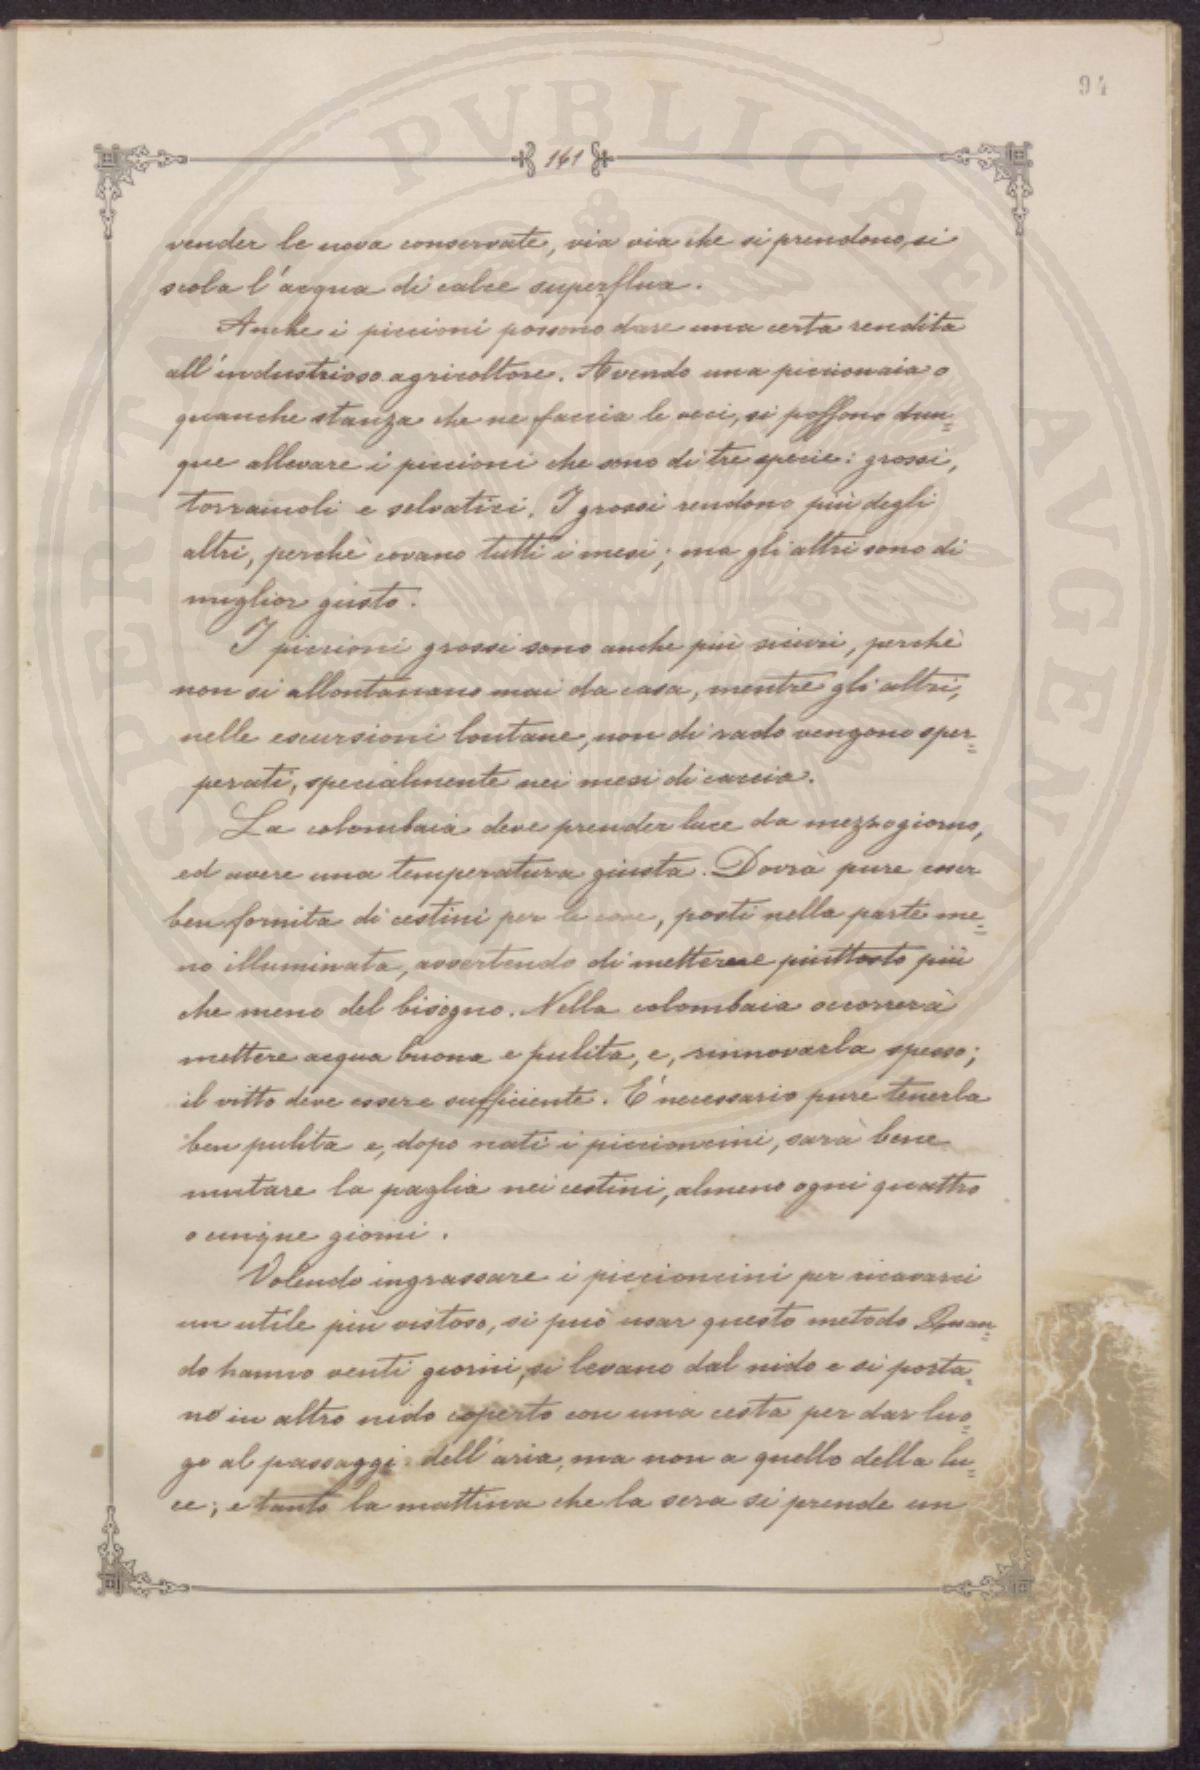 94
161
vender le uova conservate, via via che si prendono, si
scola l'acqua di calce superflua.
Anche i piccioni possono dare una certa rendita
all'industrioso agricoltore. Avendo una piccionaia o
quanche stanza che ne faccia le veci, si possono dun=
que allevare i piccioni che sono di tre specie: grossi,
torraiuoli e selvatici. I grossi rendono più degli
altri, perchè covano tutti i mesi; ma gli altri sono di
miglior gusto.
I piccioni grossi sono anche più sicuri, perchè
non si allontanano mai da casa, mentre gli altri,
nelle escursioni lontane, non di rado vengono sper=
perati, specialmente nei mesi di caccia.
La colombaia deve prender luce da mezzogiorno,
ed avere una temperatura giusta. Dovrà pure esser
ben fornita di cestini per le cove, posti nella parte me=
no illuminata, avvertendo di metterne piuttosto più
che meno del bisogno. Nella colombaia occorrerà
mettere acqua buona e pulita, e, rinnovarla spesso;
il vitto deve essere sufficiente. E' necessario pure tenerla
ben pulita e, dopo nati i piccioncini, sarà bene
mutare la paglia nei cestini, almeno ogni quattro
o cinque giorni.
Volendo ingrassare i piccioncini per ricavarci
un utile più vistoso, si può usar questo metodo Quan=
do hanno venti giorni, si levano dal nido e si porta=
no in altro nido coperto con una cesta per dar luo=
go al passaggi dell'aria, ma non a quello della lu=
ce; e tanto la mattina che la sera si prende un